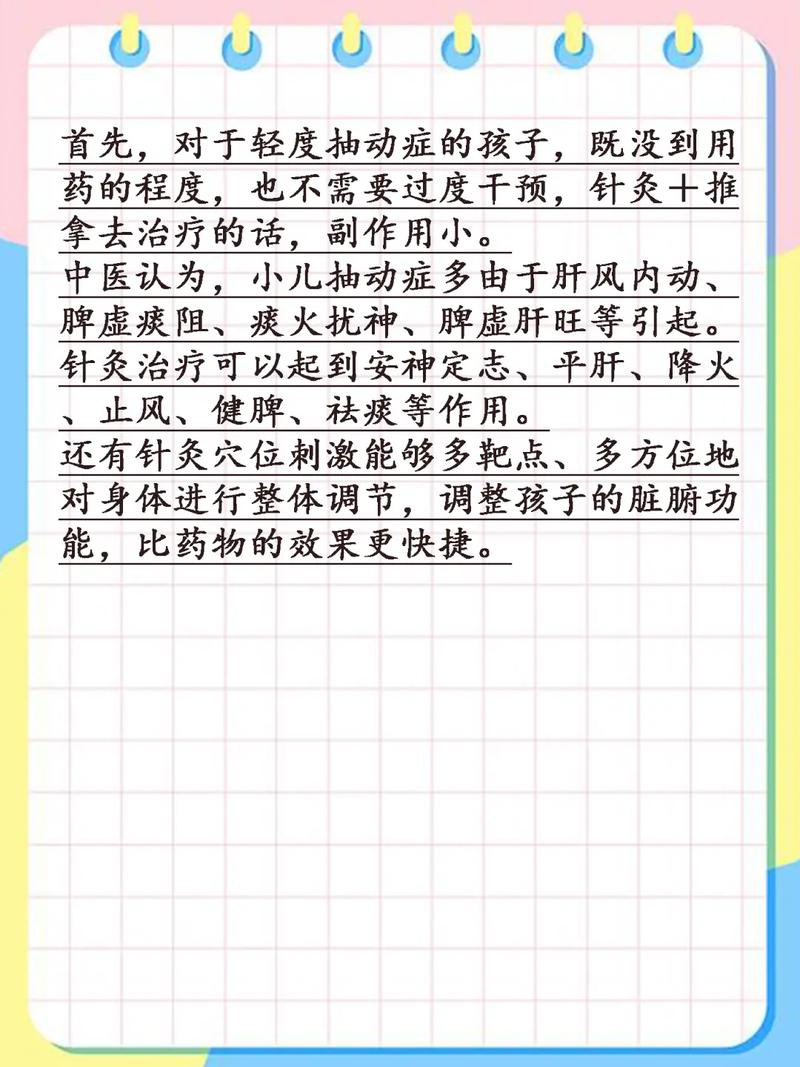 首先，对于轻度抽动症的孩子，既没到用
药的程度，也不需要过度干预，针灸＋推
拿去治疗的话，副作用小。
中医认为，小儿抽动症多由于肝风内动、
脾虚痰阻、痰火扰神、脾虚肝旺等引起。
针灸治疗可以起到安神定志、平肝、降火
、止风、健脾、祛痰等作用。
还有针灸穴位刺激能够多靶点、多方位地
对身体进行整体调节，调整孩子的脏腑功
能，比药物的效果更快捷。